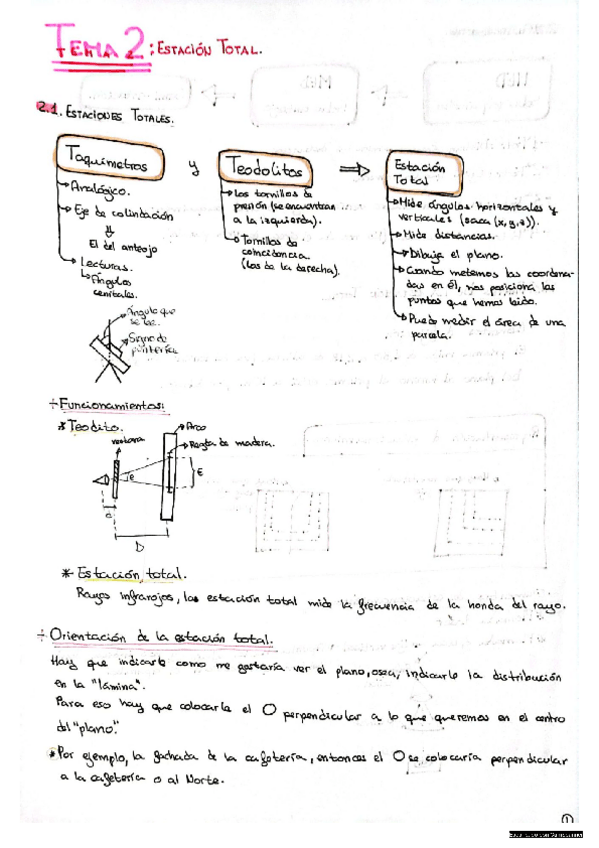 TEMA 2: ESTACIÓN TOTAL.
2.1. ESTACIONES TOTALES.
Taquímetros y Teodolitos ⇒ Estación Total
→Analógico.
→Eje de colindación
⇓
El del anteojo
→Lecturas.
↳Ángulos
cenitales.
→Ángulo que
se lee.
→Signo de
puntería
→Los tornillos de
presión (se encuentran
a la izquierda).
→Tornillos de
coincidencia
(los de la derecha).
→Mide ángulos horizontales y
verticales (saca (x,y,z)).
→Mide distancias.
→Dibuja el plano.
→Cuando metemos las coordena-
das en él, nos posiciona los
puntos que hemos leido.
→Puede medir el área de una
parcela.
÷Funcionamientos:
* Teodito.
ventana
→Arco
→Regla de madera.
e
E
d
D
* Estación total.
Rayos infrarojos, las estación total mide la frecuencia de la honda del rayo.
÷ Orientación de la estación total.
Hay que indicarle como me gustaría ver el plano, osea, indicarle la distribución
en la "lámina".
Para eso hay que colocarle el O perpendicular a lo que queremos en el centro
del "plano".
*Por ejemplo, la fachada de la cafetería, entonces el O se colocaría perpendicular
a la cafetería o al Norte.
1